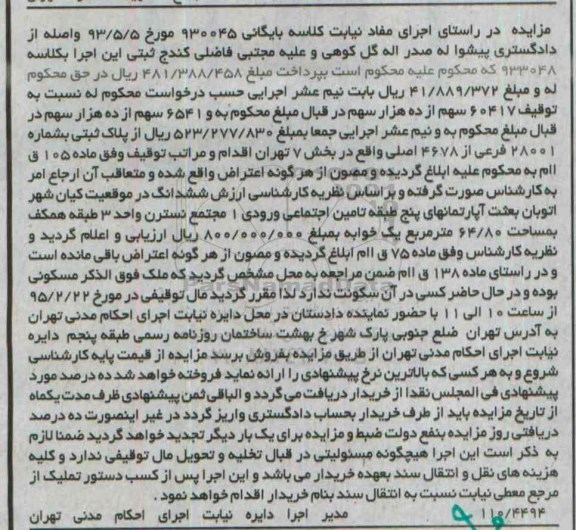 مزایده در راستای اجرای مفاد نیابت کلاسه بایگانی ۹۳۰۰۴۵ مورخ ۹۳/۵/۵ واصله از
دادگستری پیشوا له صدر اله گل کوهی و علیه مجتبی فاضلی کندج ثبتی این اجرا بکلاسه
۹۳۳۰۴۸ که محکوم علیه محکوم است بپرداخت مبلغ ۴۸۱/۳۸۸/۴۵۸ ریال در حق محکوم
له و مبلغ ۴۱/۸۸۹/۳۷۲ ریال بابت نیم عشر اجرایی حسب درخواست محکوم له نسبت به
توقیف ۶۰۴۱۷ سهم از ده هزار سهم در قبال مبلغ محکوم به و ۶۵۴۱ سهم از ده هزار سهم در
قبال مبلغ محکوم به و نیم عشر اجرایی جمعا بمبلغ ۵۲۳/۲۷۷/۸۳۰ ریال از پلاک ثبتی بشماره
۲۸۰۰۱ فرعی از ۴۶۷۸ اصلی واقع در بخش ۷ تهران اقدام و مراتب توقیف وفق ماده ۱۰۵ ق
اام به محکوم علیه ابلاغ گردیده و مصون از هر گونه اعتراض واقع شده و متعاقب آن ارجاع امر
به کارشناس صورت گرفته و بر اساس نظریه کارشناسی ارزش ششدانگ در موقعیت کیان شهر
اتوبان بعثت آپارتمانهای پنج طبقه تامین اجتماعی ورودی ۱ مجتمع نسترن واحد ۳ طبقه همکف
بمساحت ۶۴/۸۰ مترمربع یک خوابه بمبلغ ۸۰۰/۰۰۰/۰۰۰ ریال ارزیابی و اعلام گردید و
نظریه کارشناس وفق ماده ۷۵ ق اام ابلاغ گردیده و مصون از هر گونه اعتراض باقی مانده است
و در راستای ماده ۱۳۸ ق اام ضمن مراجعه به محل مشخص گردید که ملک فوق الذکر مسکونی
بوده و در حال حاضر کسی در آن سکونت ندارد لذا مقرر گردید مال توقیفی در مورخ ۹۵/۲/۲۲
از ساعت ۱۰ الی ۱۱ با حضور نماینده دادستان در محل دایره نیابت اجرای احکام مدنی تهران
به آدرس تهران ضلع جنوبی پارک شهر خ بهشت ساختمان روزنامه رسمی طبقه پنجم دایره
نیابت اجرای احکام مدنی تهران از طریق مزایده بفروش برسد مزایده از قیمت پایه کارشناسی
شروع و به هر کسی که بالاترین نرخ پیشنهادی را ارائه نماید فروخته خواهد شد ده درصد مورد
پیشنهادی فی المجلس نقدا از خریدار دریافت می گردد و الباقی ثمن پیشنهادی ظرف مدت یکماه
از تاریخ مزایده باید از طرف خریدار بحساب دادگستری واریز گردد در غیر اینصورت ده درصد
دریافتی روز مزایده بنفع دولت ضبط و مزایده برای یک بار دیگر تجدید خواهد گردید ضمنا لازم
به ذکر است این اجرا هیچگونه مسئولیتی در قبال تخلیه و تحویل مال توقیفی ندارد و کلیه
هزینه های نقل و انتقال سند بعهده خریدار می باشد و این اجرا پس از کسب دستور تملیک از
مرجع معطی نیابت نسبت به انتقال سند بنام خریدار اقدام خواهد نمود .
۱۱۰/۴۴۹۴ مدیر اجرا دایره نیابت اجرای احکام مدنی تهران